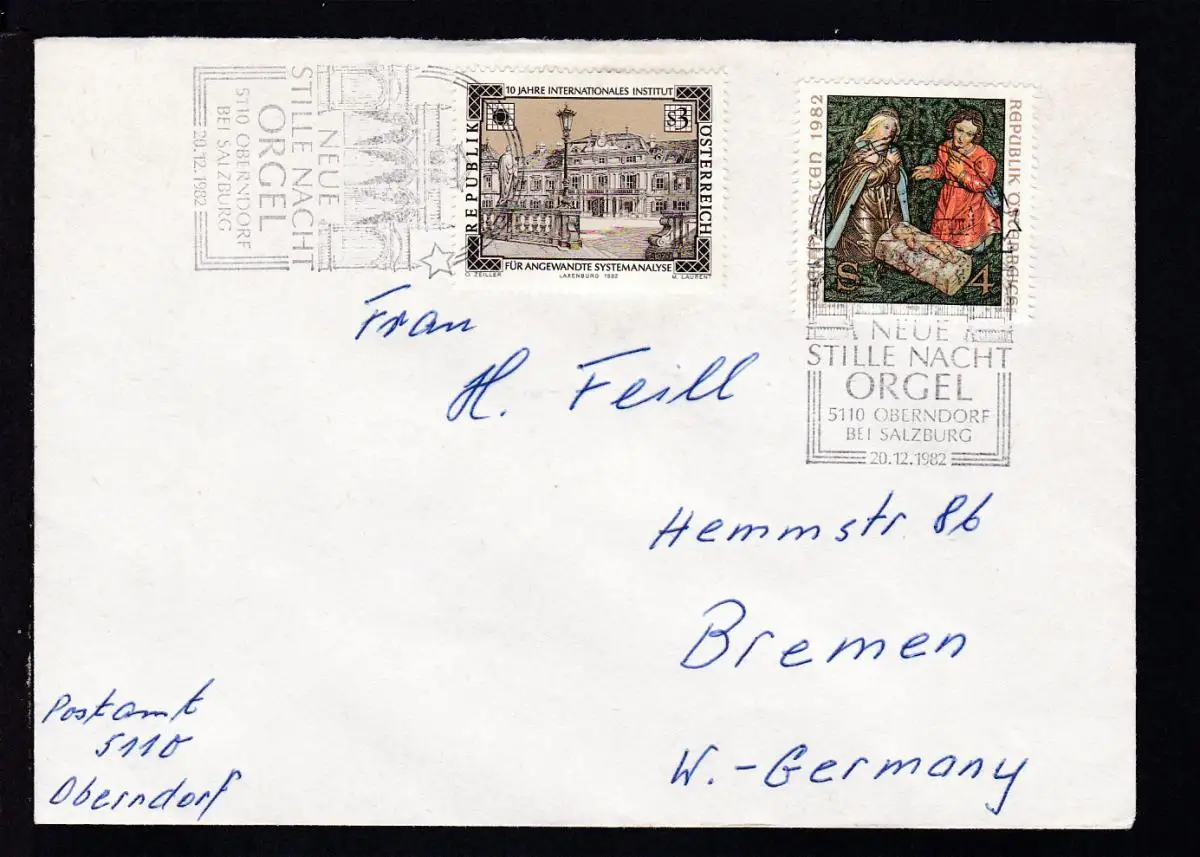 NEUE
STILLE NACHT
ORGEL
5110 OBERNDORF
BEI SALZBURG
20.12.1982
10 JAHRE INTERNATIONALES INSTITUT
S3
REPUBLIK
ÖSTERREICH
FÜR ANGEWANDTE SYSTEMANALYSE
O. ZEILLER
LAXENBURG 1982
M. LAURENT
1982
REPUBLIK ÖSTERREICH
S 4
NEUE
STILLE NACHT
ORGEL
5110 OBERNDORF
BEI SALZBURG
20.12.1982
Frau
H. Feill
Hemmstr. 86
Bremen
W.-Germany
Postamt
5110
Oberndorf